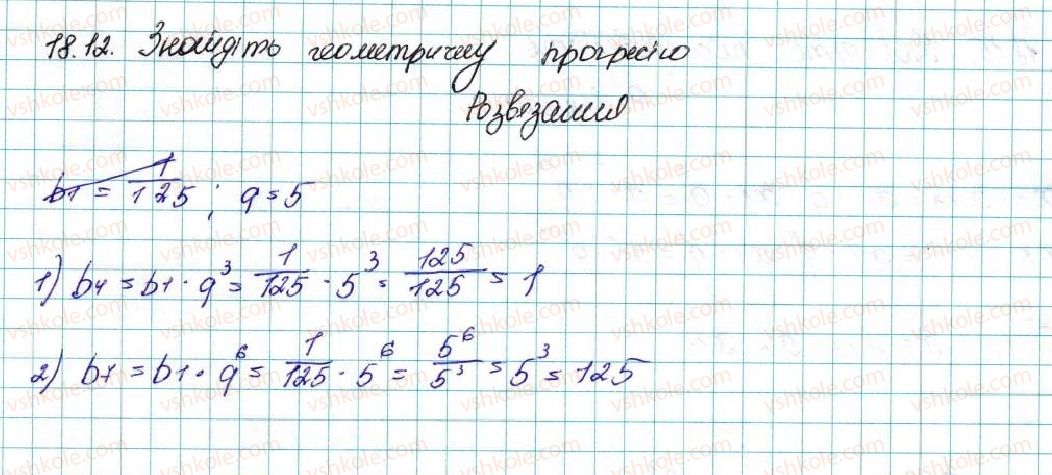 18.12. Знайдіть геометричну прогресію
Розв'язання
b1 = 1/125; q = 5
1) b4 = b1 · q^3 = 1/125 · 5^3 = 125/125 = 1
2) b7 = b1 · q^6 = 1/125 · 5^6 = 5^6/5^3 = 5^3 = 125
vshkole.com